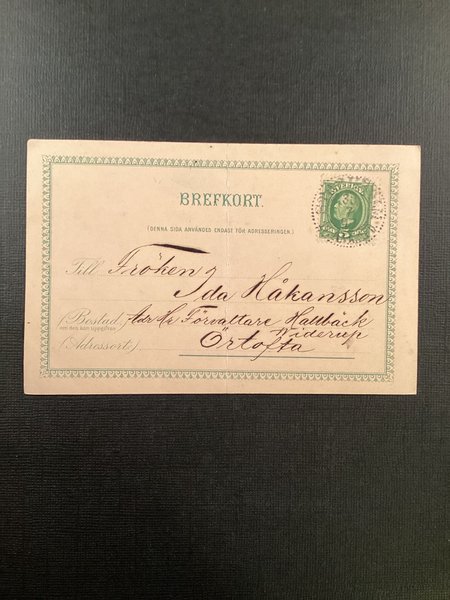 BREFKORT.
(DENNA SIDA ANVÄNDES ENDAST FÖR ADRESSERINGEN.)
SVERIGE
5
Till Fröken
Ida Håkansson
(Bostad,) Adr Hr Förvaltare Hallbäck
om den kan uppgifvas
Widerup
(Adressort.) Örtofta